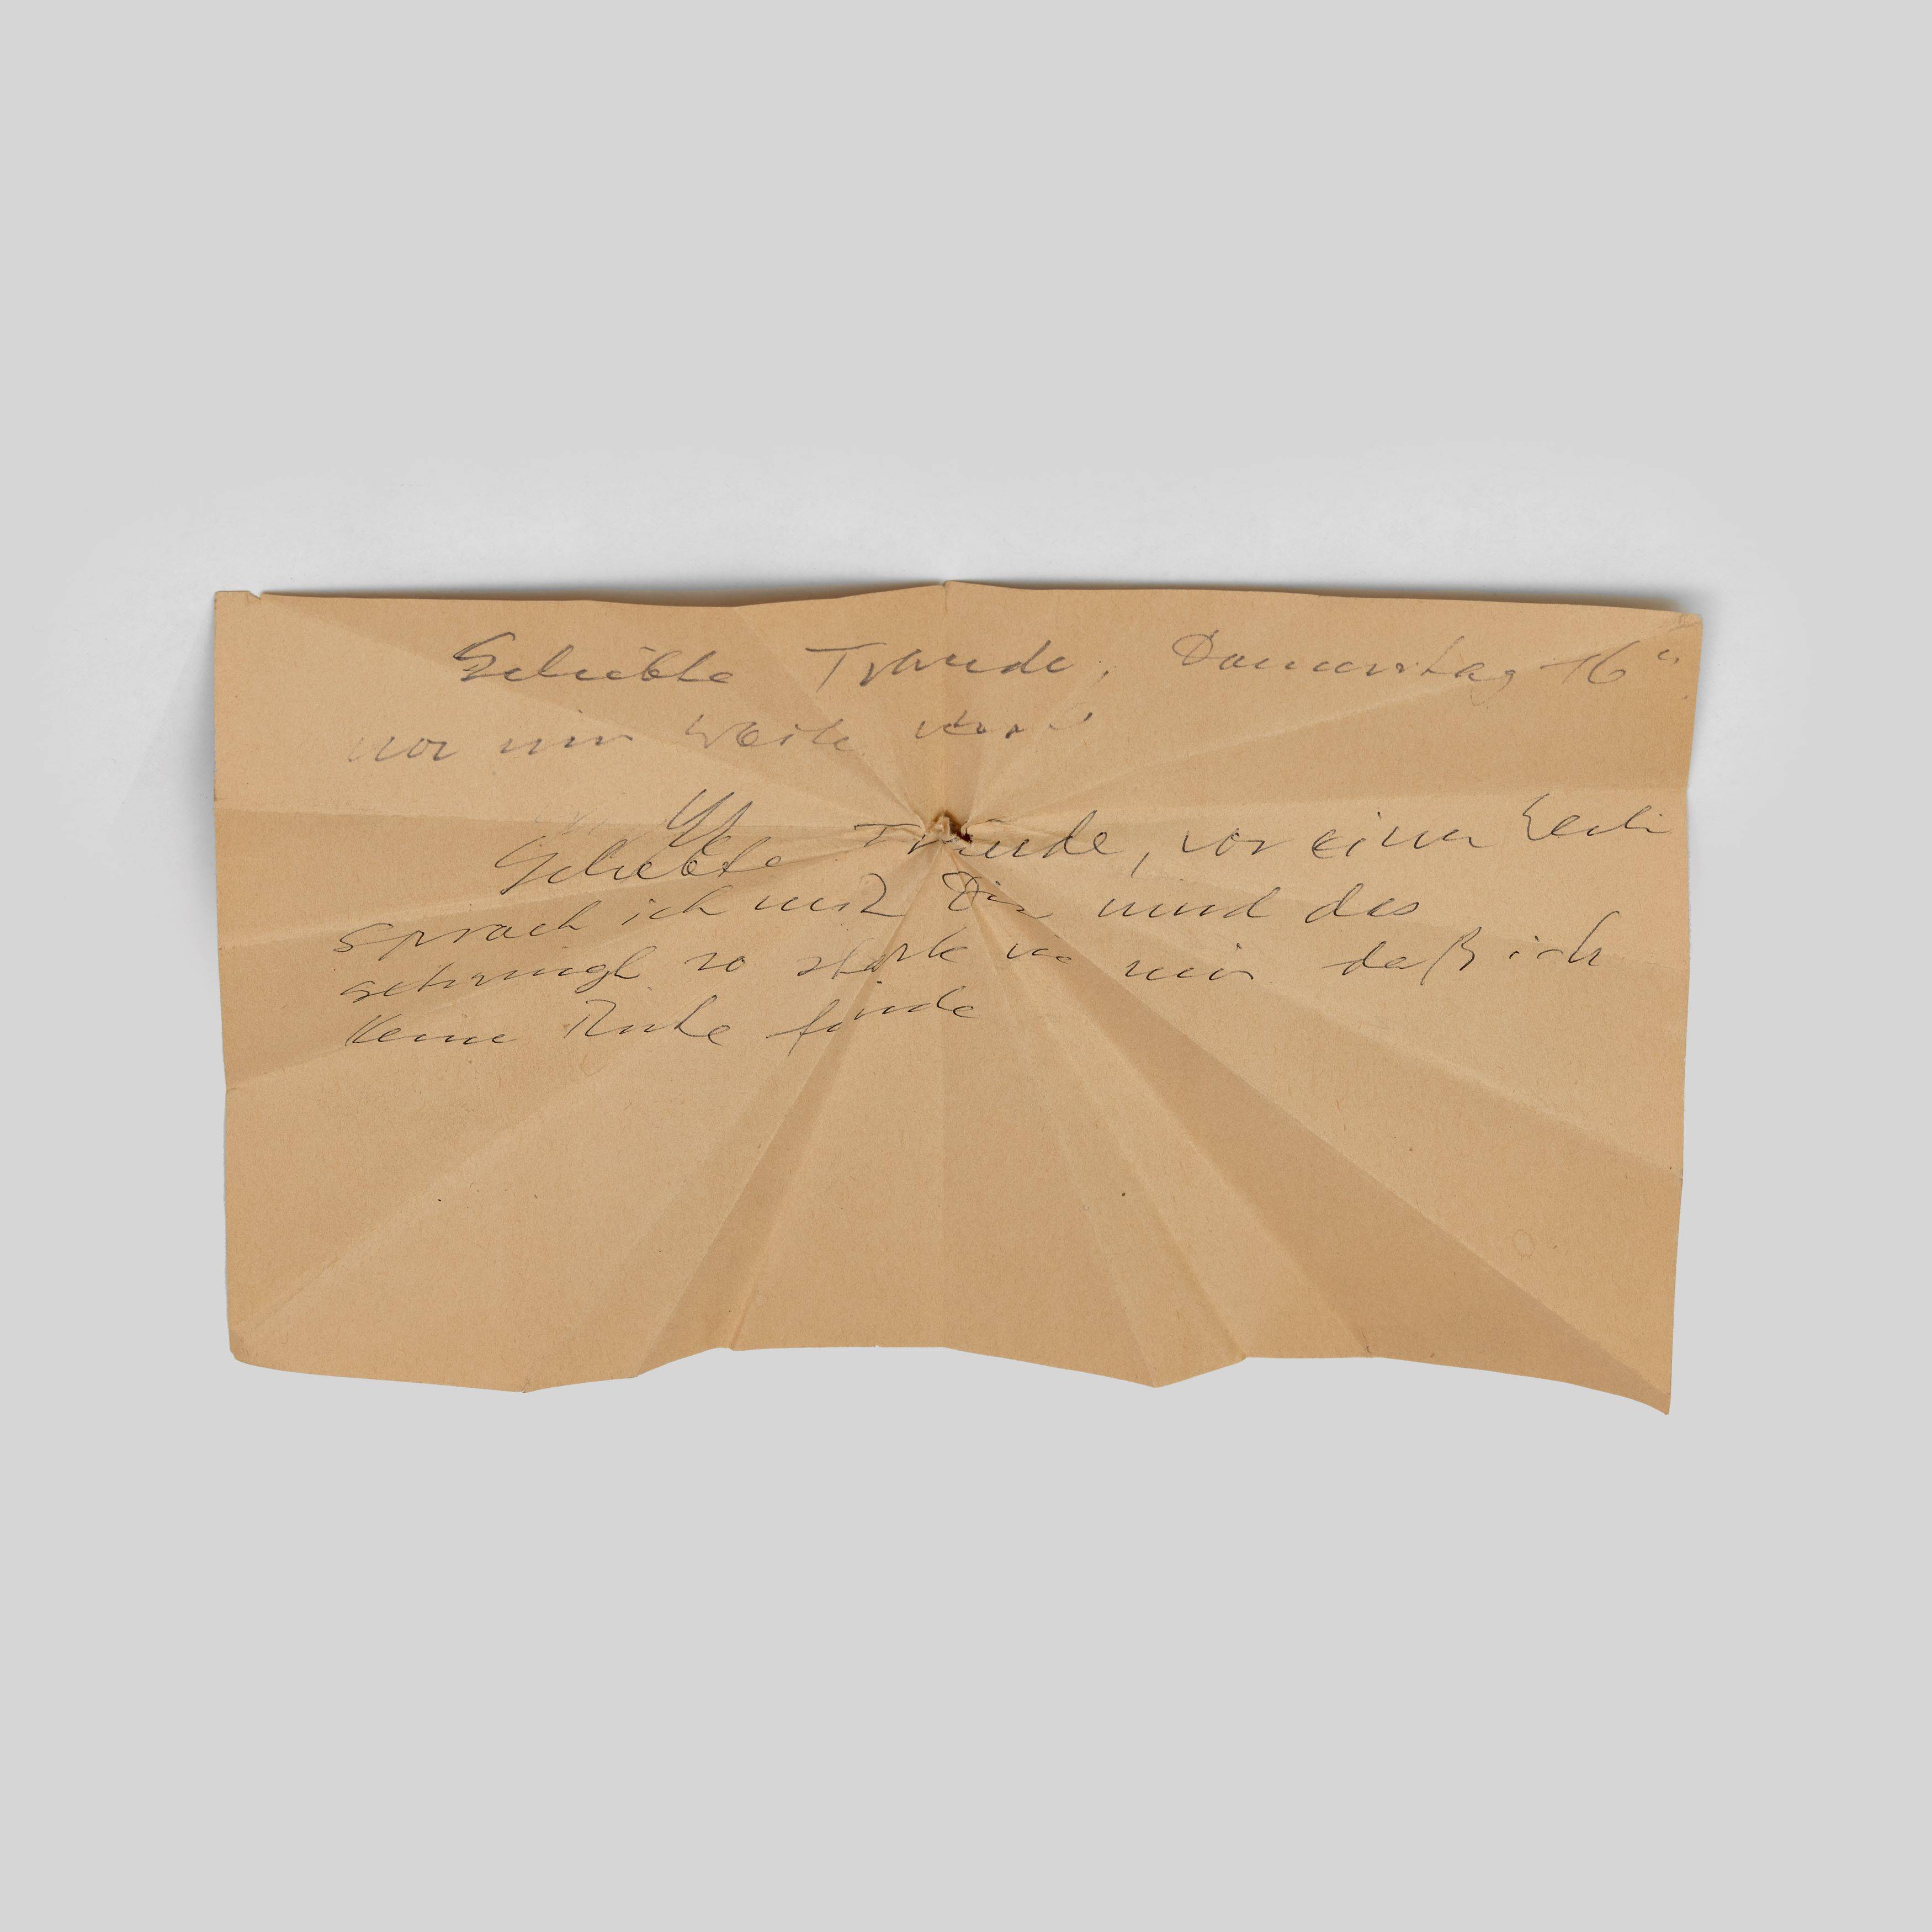 Geliebte Traude, Donnerstag 16
vor mir
Geliebte Traude, vor einer
sprach ich mit Dir und das
schwingt so stark in mir daß ich
keine Ruhe finde